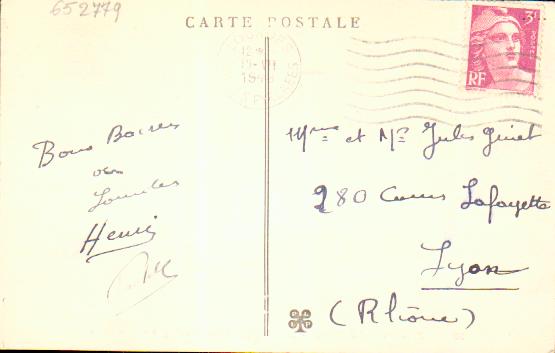 652779
CARTE POSTALE
3F
RF
LOURDES
12
1948
Bons Baisers
de
Lourdes
Henri
Mme et Mr Jules Ginet
280 Cours Lafayette
Lyon
(Rhône)